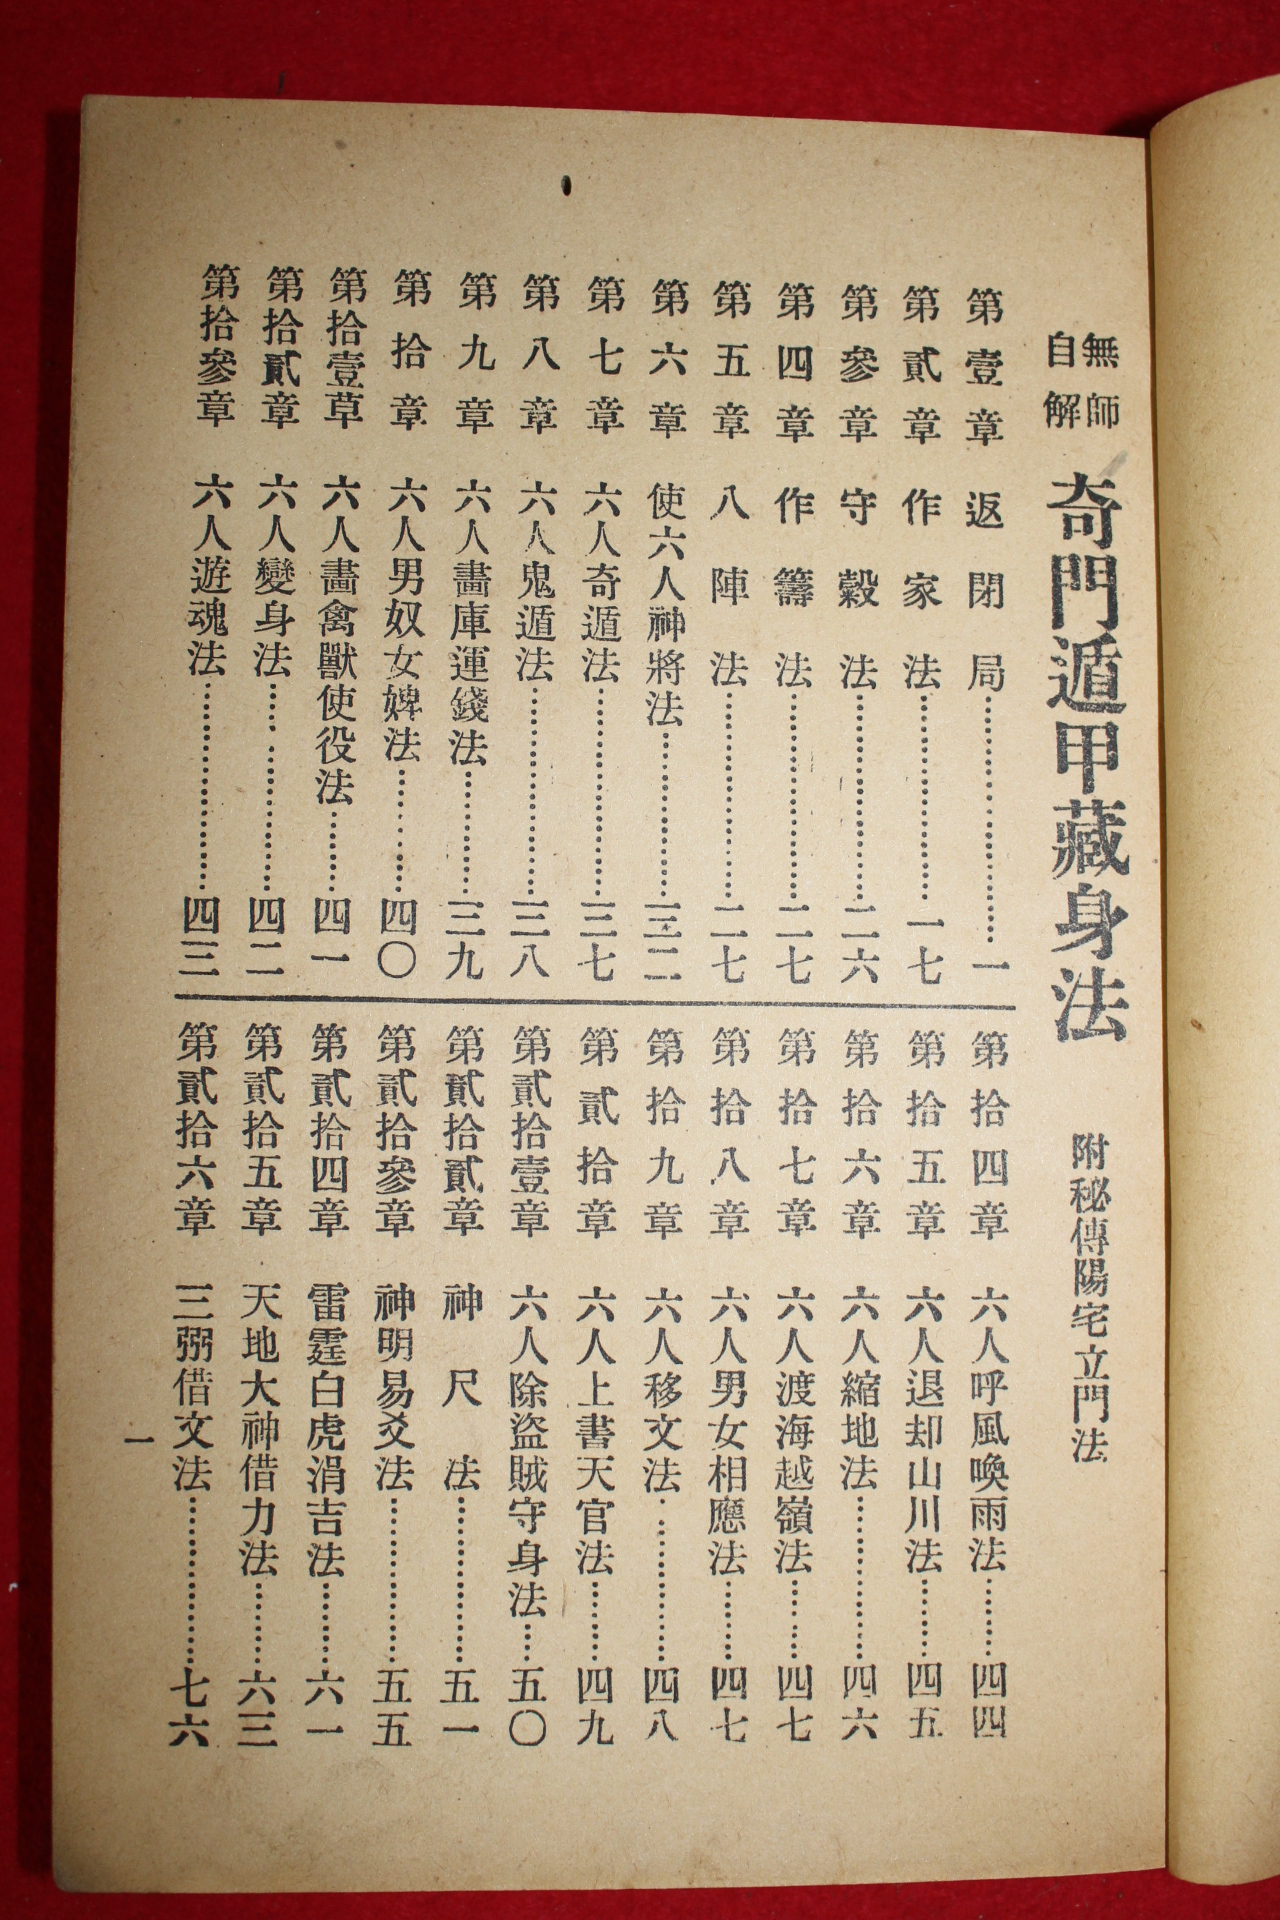 無師自解 奇門遁甲藏身法 附秘傳陽宅立門法
第壹章 返閉局……………………一
第貳章 作家法……………………一七
第參章 守穀法……………………二六
第四章 作籌法……………………二七
第五章 八陣法……………………二七
第六章 使六人神將法……………三二
第七章 六人奇遁法………………三七
第八章 六人鬼遁法………………三八
第九章 六人畵庫運錢法…………三九
第拾章 六人男奴女婢法…………四〇
第拾壹草 六人畵禽獸使役法……四一
第拾貳章 六人變身法……………四二
第拾參章 六人遊魂法……………四三
第拾四章 六人呼風喚雨法………四四
第拾五章 六人退却山川法………四五
第拾六章 六人縮地法……………四六
第拾七章 六人渡海越嶺法………四七
第拾八章 六人男女相應法………四七
第拾九章 六人移文法……………四八
第貳拾章 六人上書天官法………四九
第貳拾壹章 六人除盜賊守身法…五〇
第貳拾貳章 神尺法………………五一
第貳拾參章 神明易爻法…………五五
第貳拾四章 雷霆白虎涓吉法……六一
第貳拾五章 天地大神借力法……六三
第貳拾六章 三弼借文法…………七六
一